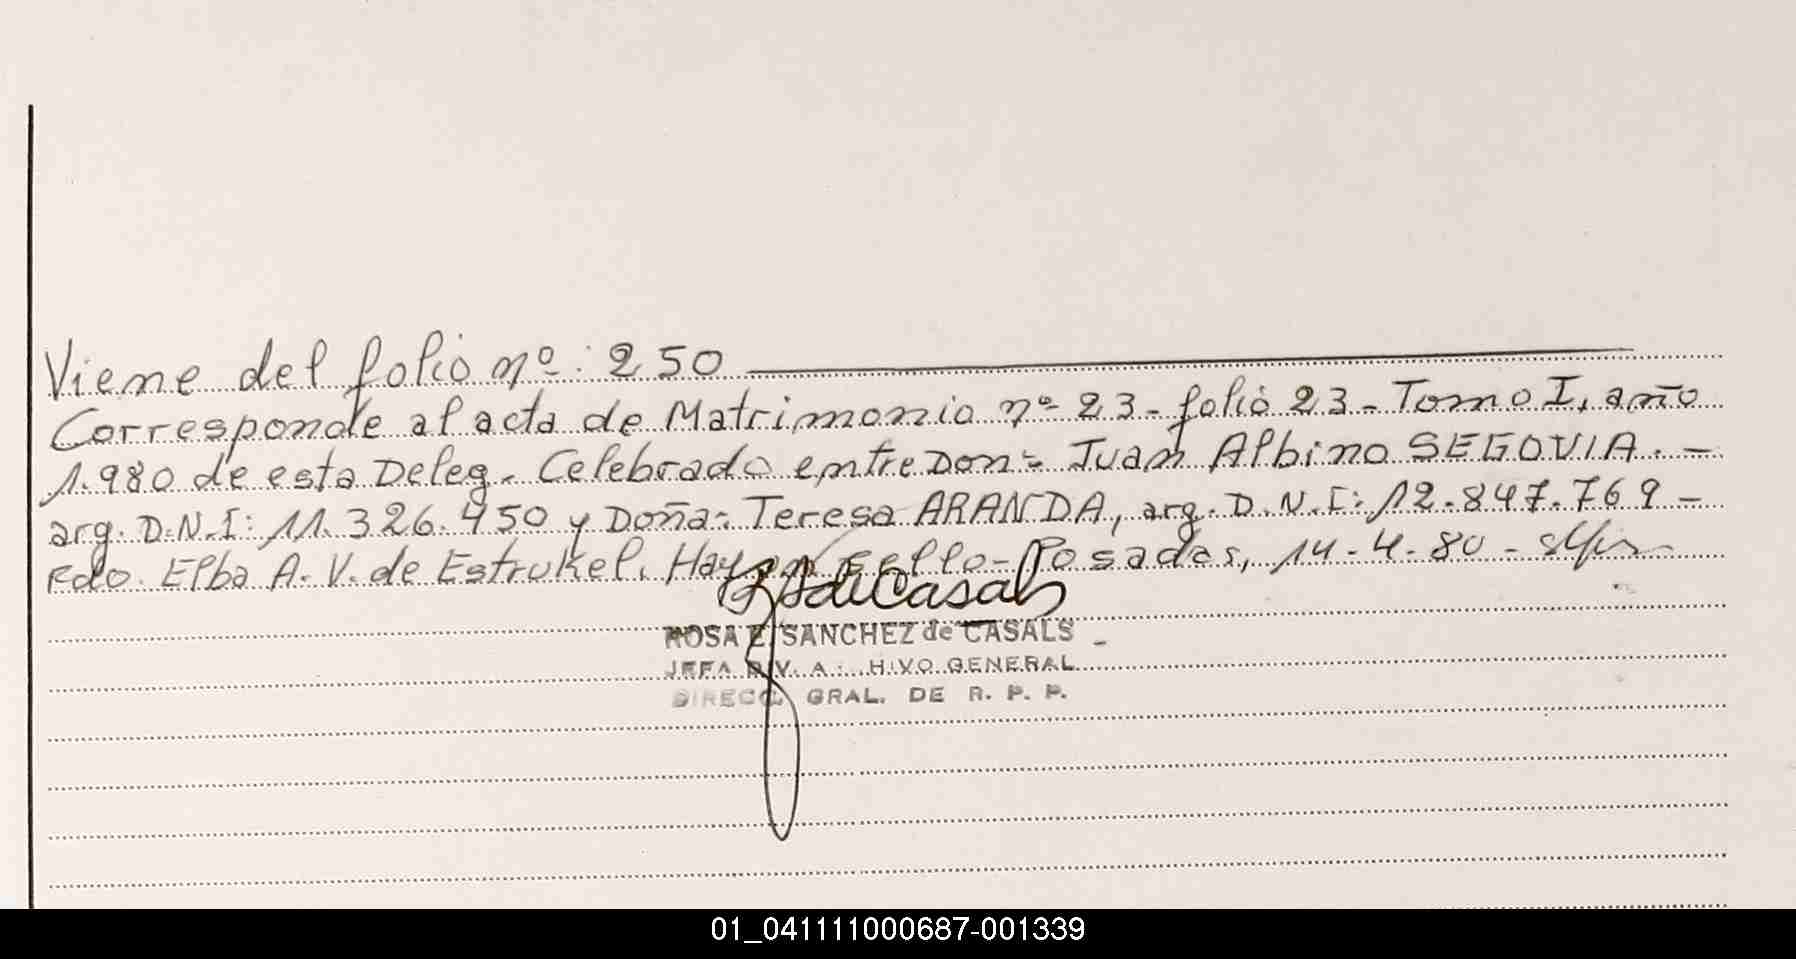 Viene del folio nº: 250
Corresponde al acta de Matrimonio nº 23 - folio 23 - Tomo I, año
1.980 de esta Deleg. Celebrado entre Don: Juan Albino SEGOVIA. -
arg. D.N.I: 11.326.450 y Doña: Teresa ARANDA, arg. D.N.I: 12.847.769 -
Fdo. Elba A. V. de Estrukel. Hay un sello - Posadas, 14-4-80 -
ROSA E. SANCHEZ de CASALS
JEFA DIV. A HIVO GENERAL
DIRECC. GRAL. DE R. P. P.
01_041111000687-001339